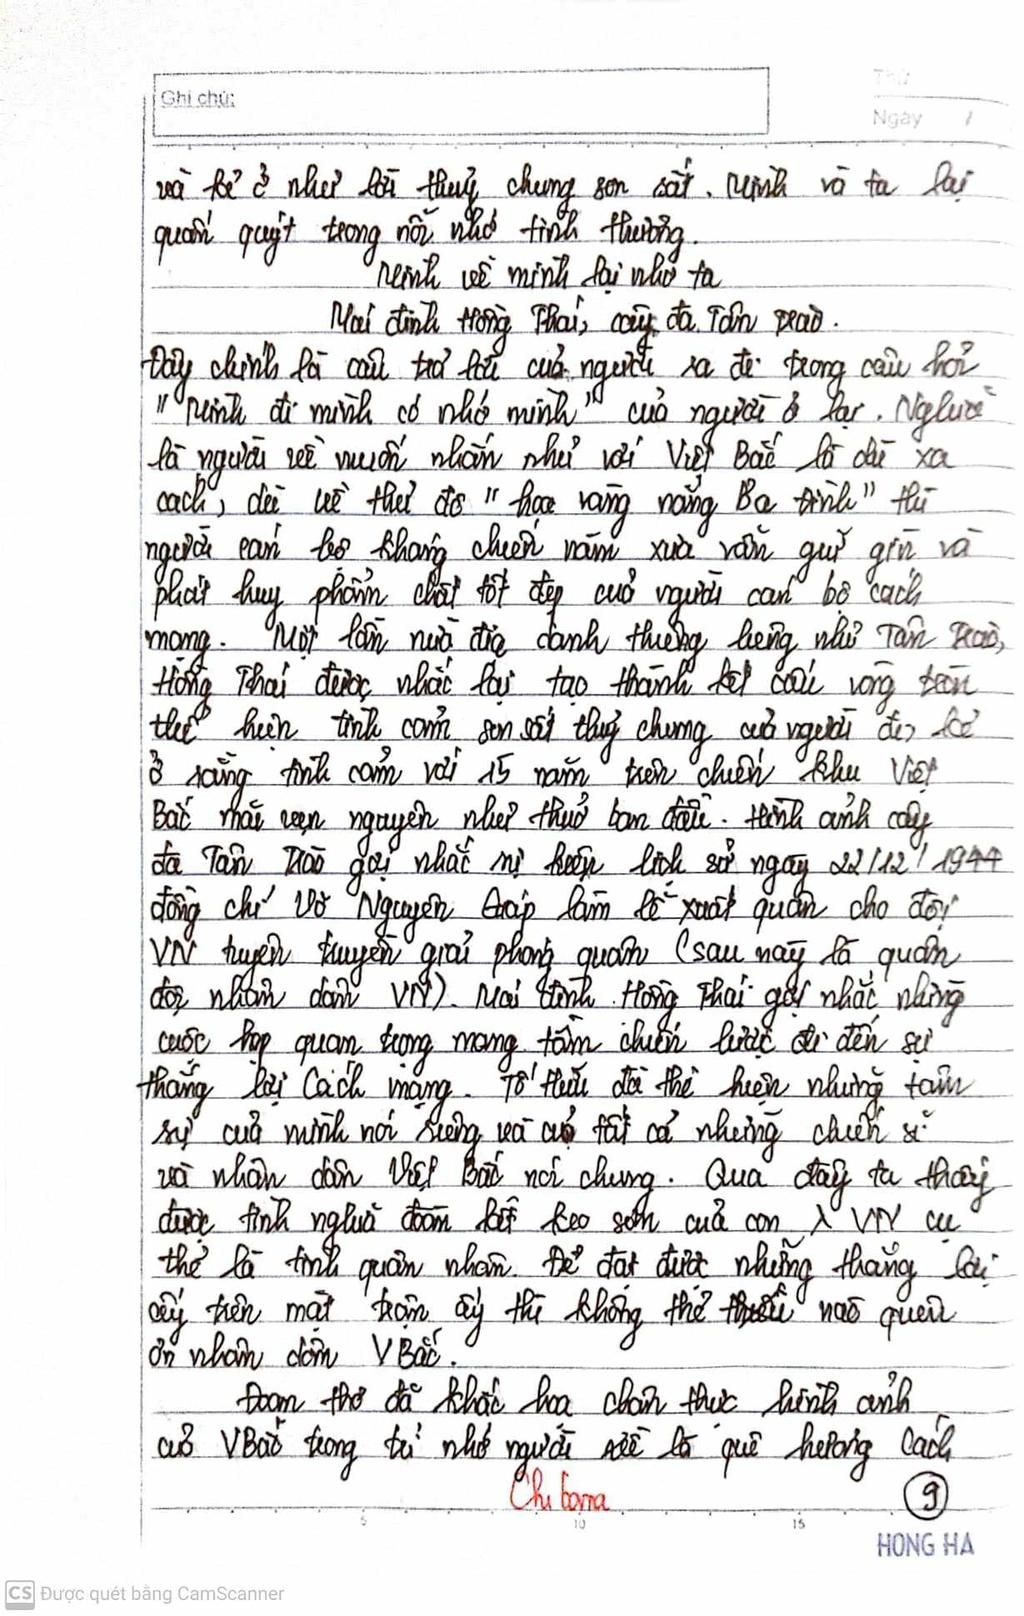 Ghi chú:
Thứ
Ngày /
và kẻ ở như lời thuỷ chung son sắt. Mình và ta lại
quấn quýt trong nỗi nhớ tình thương.
Mình về mình lại nhớ ta
Mái đình Hồng Thái, cây đa Tân Trào.
Đây chính là câu trả lời của người ra đi trong câu hỏi
"Mình đi mình có nhớ mình" của người ở lại. Nghĩa
là người về muốn nhắn nhủ với Việt Bắc là dù xa
cách, dù về thủ đô "hoa vàng nắng Ba Đình" thì
người cán bộ kháng chiến năm xưa vẫn giữ gìn và
phát huy phẩm chất tốt đẹp của người cán bộ cách
mạng. Một lần nữa địa danh thiêng liêng như Tân Trào,
Hồng Thái được nhắc lại tạo thành kết cấu vòng tròn
thể hiện tình cảm son sắt thuỷ chung của người đi, kẻ
ở rằng tình cảm với 15 năm trên chiến khu Việt
Bắc mãi vẹn nguyên như thuở ban đầu. Hình ảnh cây
đa Tân Trào gợi nhắc sự kiện lịch sử ngày 22/12/1944
đồng chí Võ Nguyên Giáp làm lễ xuất quân cho đội
VN tuyên truyền giải phóng quân (sau này là quân
đội nhân dân VN). Mái đình Hồng Thái gợi nhắc những
cuộc họp quan trọng mang tầm chiến lược đi đến sự
thắng lợi Cách mạng. Tố Hữu đã thể hiện những tâm
sự của mình nói riêng và của tất cả những chiến sĩ
và nhân dân Việt Bắc nói chung. Qua đây ta thấy
được tình nghĩa đoàn kết keo sơn của con λ VN cụ
thể là tình quân nhân. Để đạt được những thắng lợi
ấy trên mặt trận ấy thì không thể nào quên
ơn nhân dân VBắc.
Đoạn thơ đã khắc hoạ chân thực hình ảnh
của VBắc trong nhớ người về là quê hương Cách
9
HONG HA
5
10
15
CS Được quét bằng CamScanner